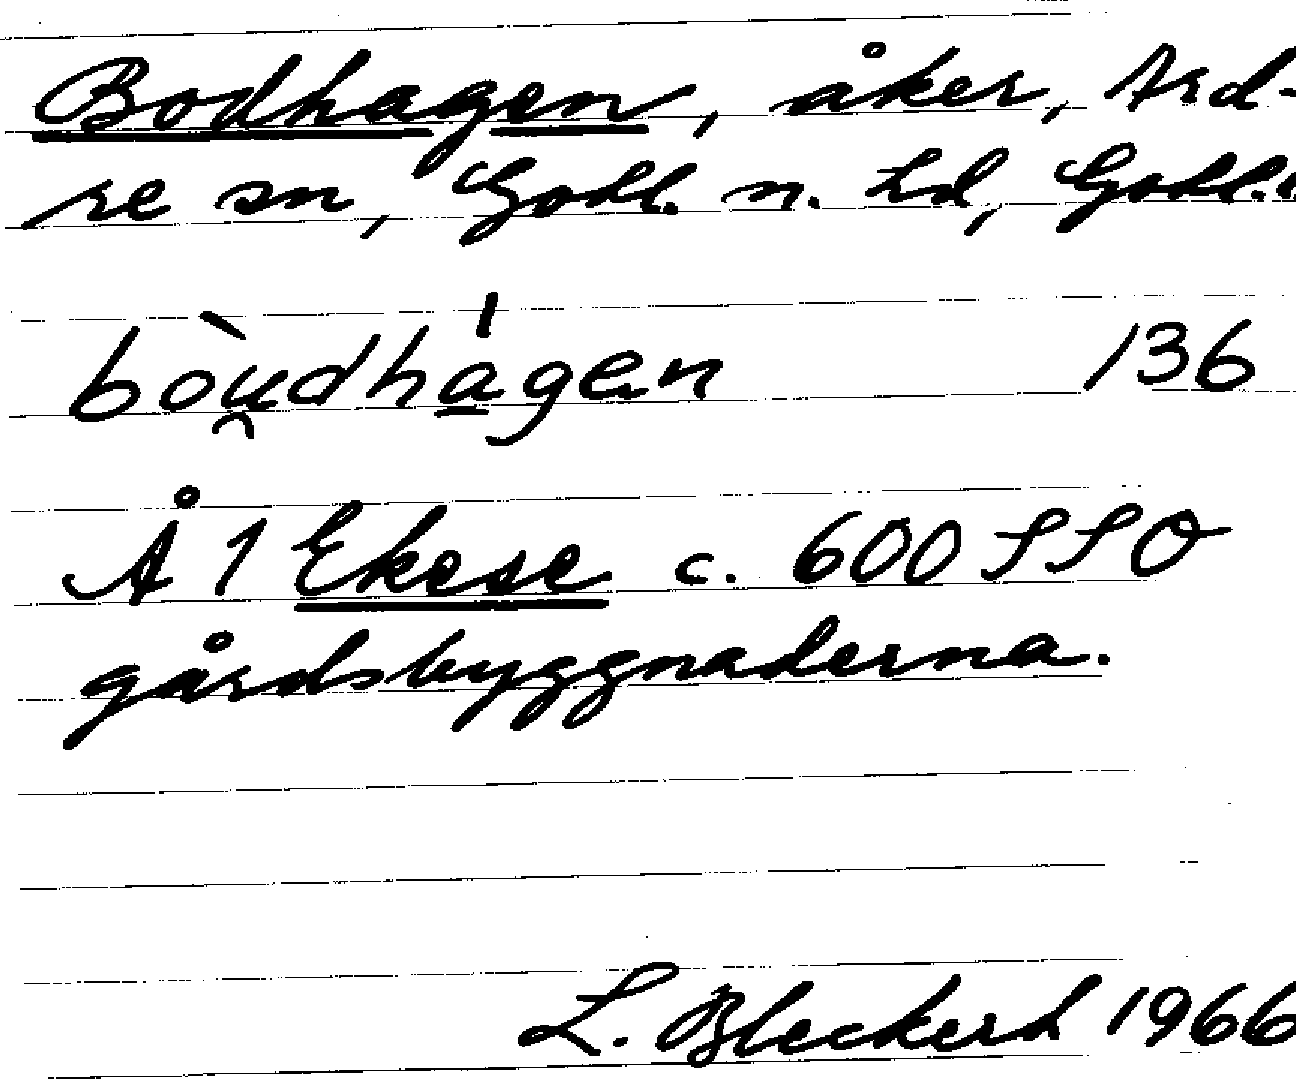 Bodhagen, åker, Ard-
re sn, Gotl. n. hd, Gotl.
bòu̯dhágen 136
Å 1 Ekese c. 600 SSO
gårdsbyggnaderna.
L. Bleckert 1966